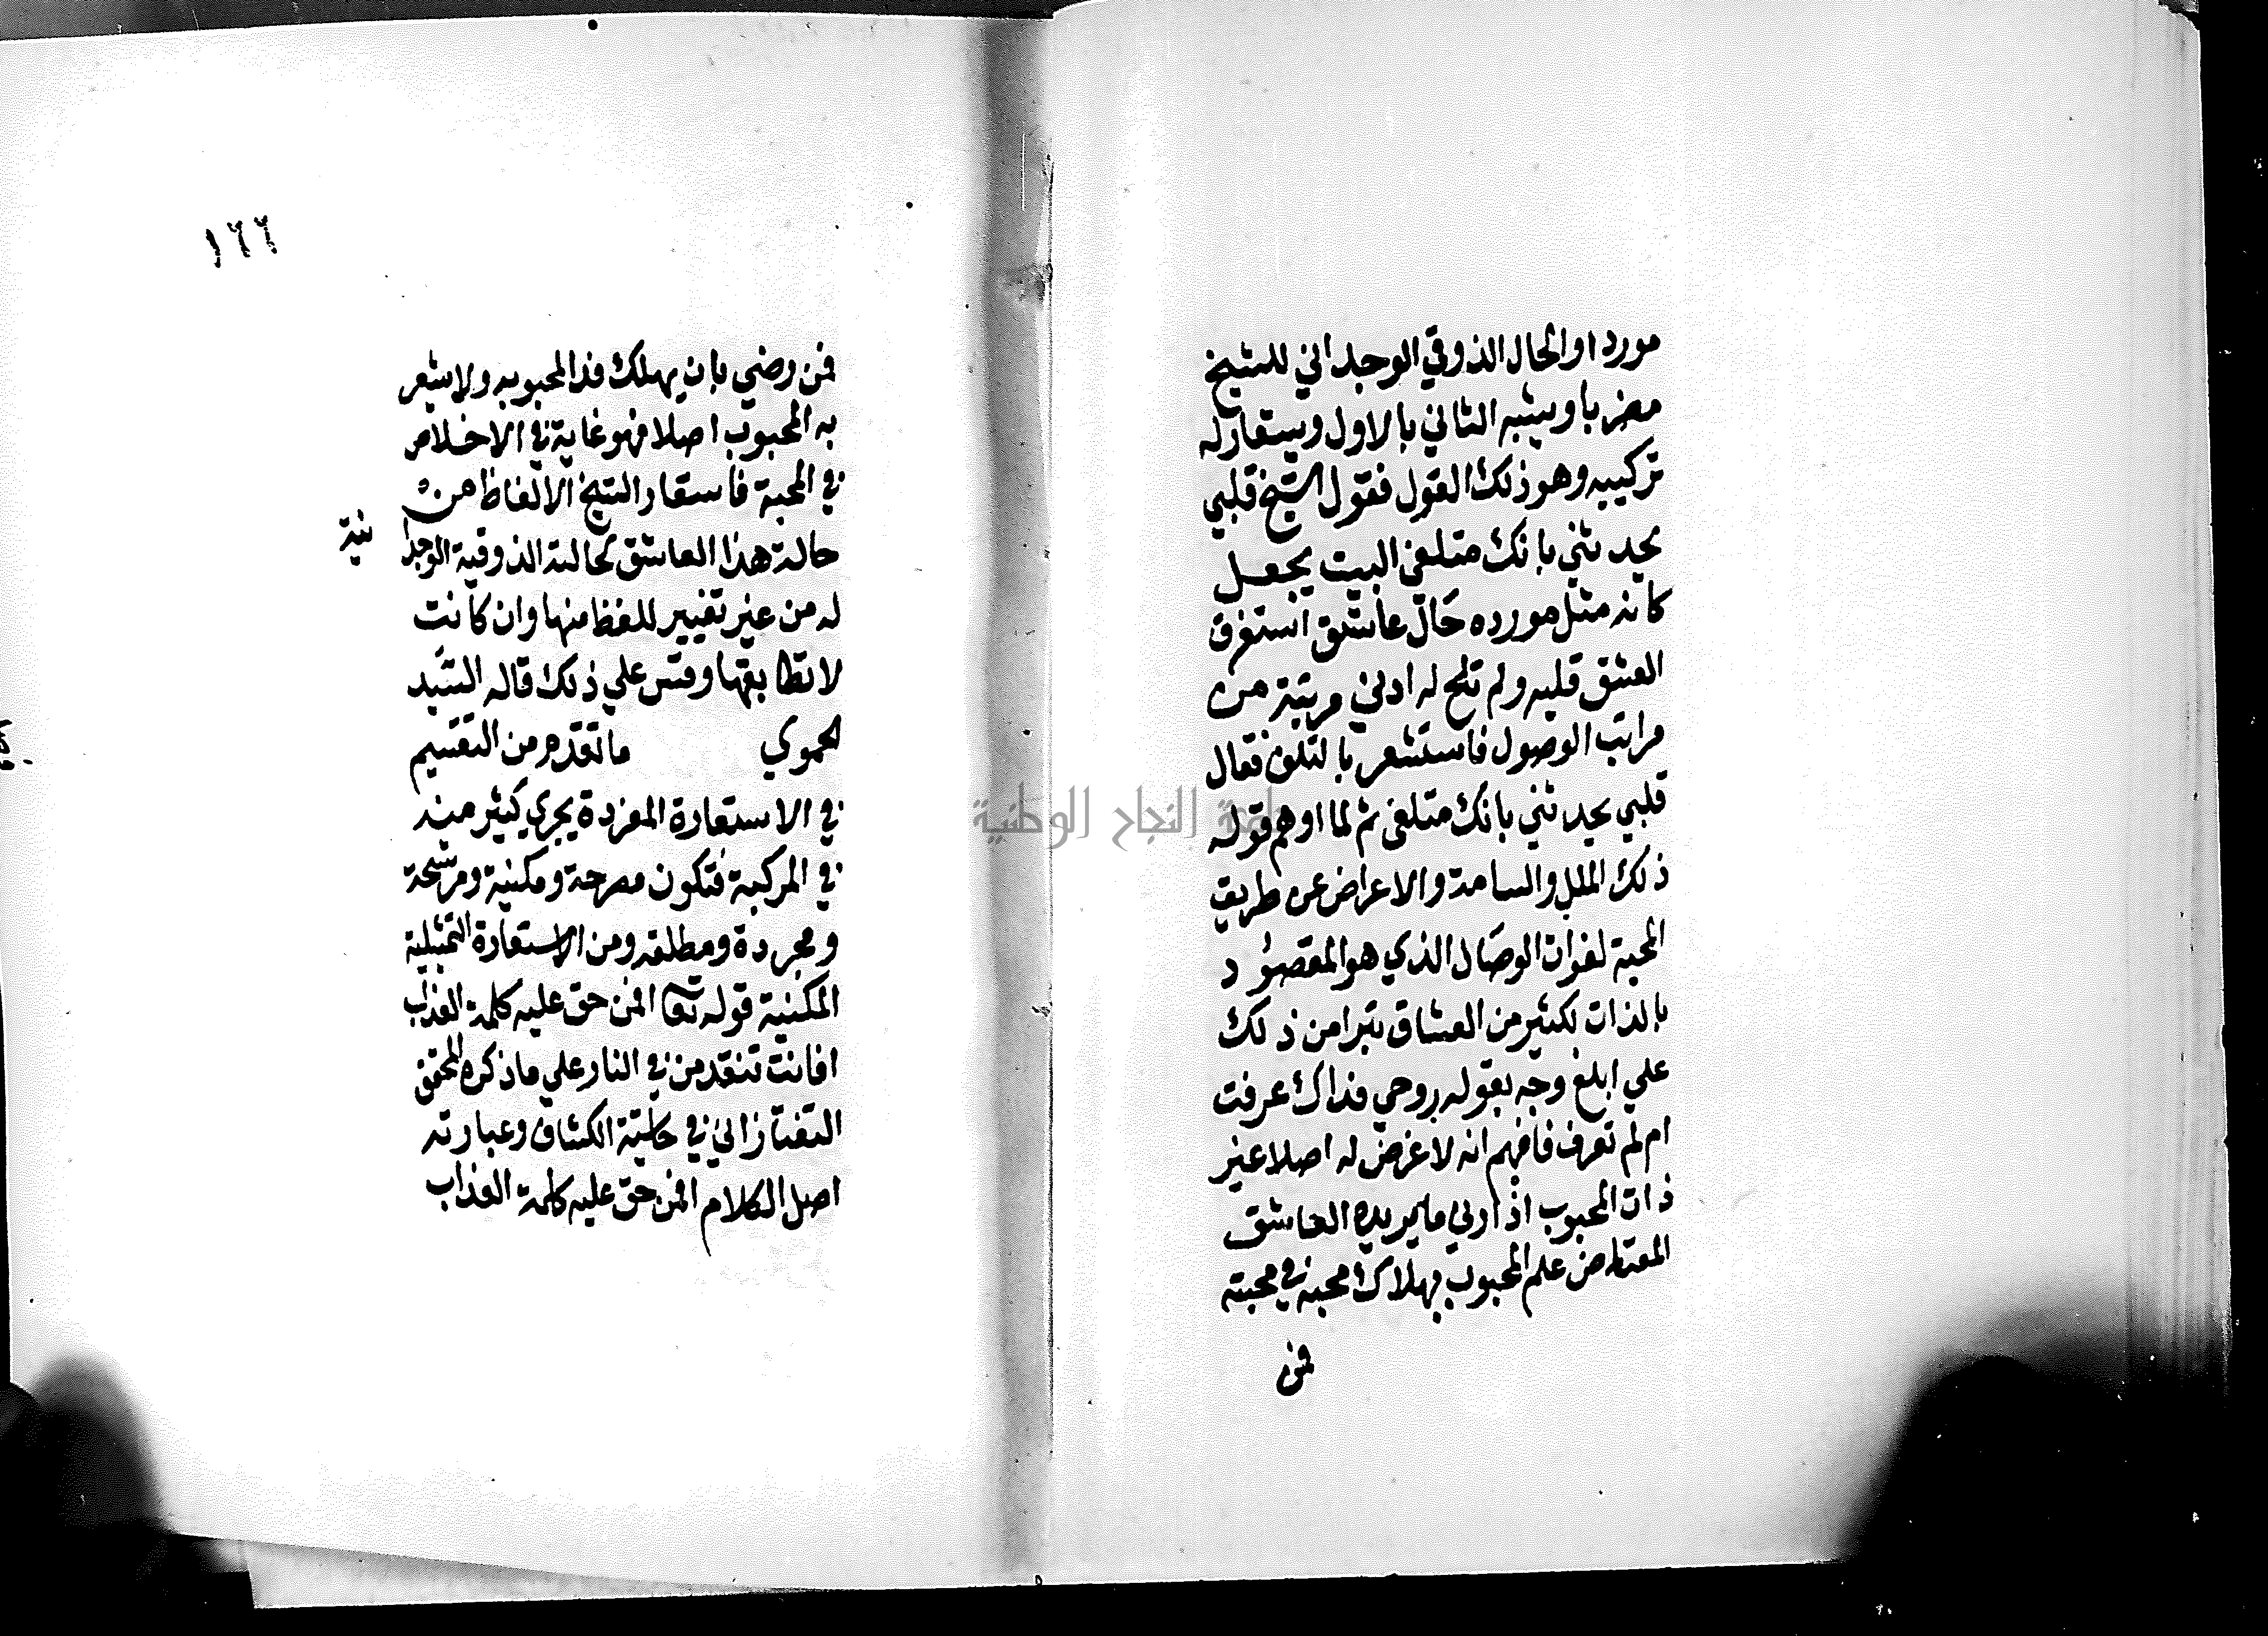 موردا والحال الذوقي الوجداني للشيخ
مضربا ويشبه الثاني بالاول ويستعار له
تركيبه وهو ذلك القول فقول الشيخ قلبي
يحدثني بانك متلفي البيت يجعل
كانه مثل مورده حال عاشق استغرق
العشق قلبه ولم تلح له ادني مرتبة من
مراتب الوصول فاستشعر بالتلف فقال
قلبي يحدثني بانك متلفي ثم لما اوهم قوله
ذلك الملل والسامة والاعراض عن طريق
المحبة لفوات الوصال الذي هو المقصود
بالذات لكثير من العشاق تبرا من ذلك
علي ابلغ وجه بقوله روحي فداك عرفت
ام لم تعرف فافهم انه لا غرض له اصلا غير
ذات المحبوب اذ ادني ما يريده العاشق
المعتاض علم المحبوب بهلاك محبه في محبته
فمن
١٦٦
فمن رضي بان يهلك فدا لمحبوبه ولا يشعر
به المحبوب اصلا فهو غاية في الاخلاص
في المحبة فاستعار الشيخ الالفاظ من
حالة هذا العاشق لحالته الذوقية الوجدا
نية
له من غير تغيير للفظ منها وان كانت
لا تطابقها وقس علي ذلك قاله السيد
الحموي ما تقدم من التقسيم
في الاستعارة المفردة يجري كثير منه
في المركبة فتكون مصرحة ومكنية ومرشحة
ومجردة ومطلقه ومن الاستعارة التمثيلية
المكنية قوله تعا افمن حق عليه كلمة العذاب
افانت تنقذ من في النار علي ما ذكره المحقق
التفتازاني في حاشية الكشاف وعبارته
اصل الكلام افمن حق عليه كلمة العذاب
جامعة النجاح الوطنية